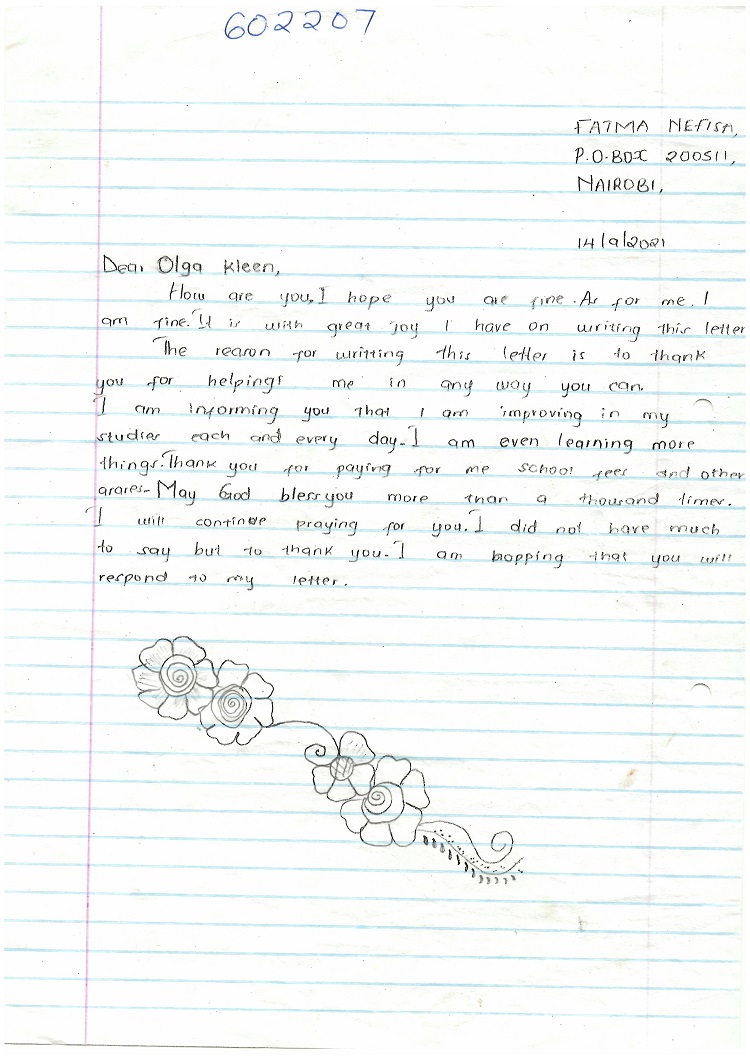 602207
FATMA NEFISA,
P.O.BOX 200511,
NAIROBI,
14/9/2021
Dear Olga Kleen,
How are you, I hope you are fine. As for me, I
am fine. It is with great joy I have on writing this letter
The reason for writting this letter is to thank
you for helpings me in any way you can.
I am informing you that I am improving in my
studies each and every day. I am even learning more
things. Thank you for paying for me school fees and other
arares. May God bless you more than a thousand times.
I will continue praying for you. I did not have much
to say but to thank you. I am hopping that you will
respond to my letter.